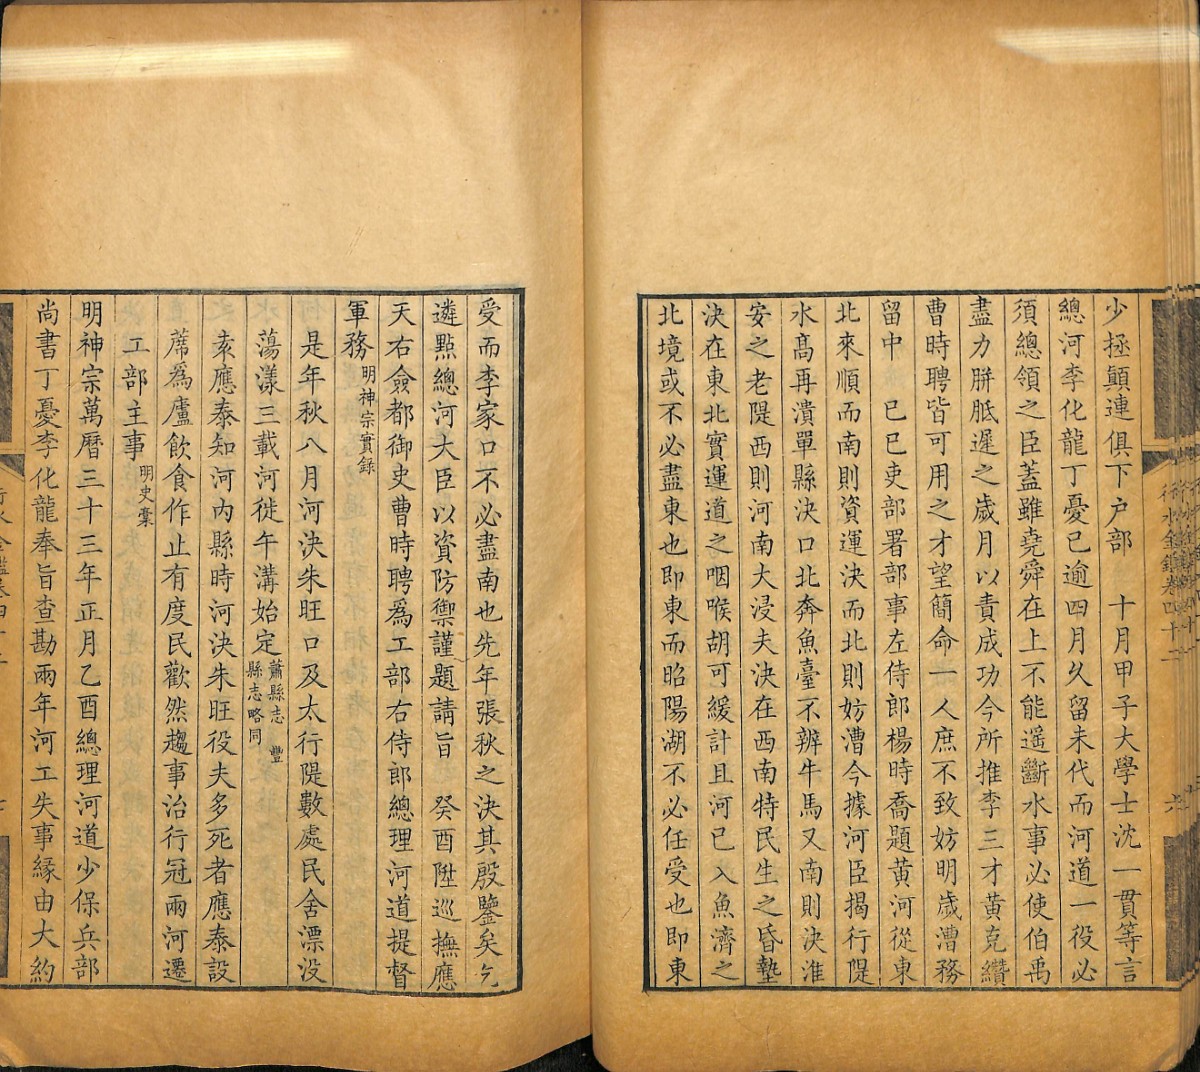 少拯顛連俱下户部　十月甲子大學士沈一貫等言
總河李化龍丁憂已逾四月久留未代而河道一役必
須總領之臣蓋雖堯舜在上不能遥斷水事必使伯禹
盡力胼胝遲之歲月以責成功今所推李三才黃克纘
曹時聘皆可用之才望簡命一人庶不致妨明歲漕務
留中　已巳吏部署部事左侍郎楊時喬題黃河從東
北來順而南則資運決而北則妨漕今據河臣揭行隄
水髙再潰單縣決口北奔魚臺不辨牛馬又南則決淮
安之老隄西則河南大浸夫決在西南特民生之昏墊
決在東北實運道之咽喉胡可緩計且河已入魚濟之
北境或不必盡東也即東而昭陽湖不必任受也即東
受而李家口不必盡南也先年張秋之決其殷鑒矣乞
遴㸃總河大臣以資防禦謹題請旨　癸酉陞巡撫應
天右僉都御史曹時聘爲工部右侍郎總理河道提督
軍務明神宗實錄
是年秋八月河決朱旺口及太行隄數處民舍漂没
蕩漾三載河徙午溝始定蕭縣志　豐縣志略同
袁應泰知河内縣時河決朱旺役夫多死者應泰設
蓆爲廬飲食作止有度民歡然趨事治行冠兩河遷
工部主事明史稾
明神宗萬曆三十三年正月乙酉總理河道少保兵部
尚書丁憂李化龍奉旨查勘兩年河工失事緣由大約